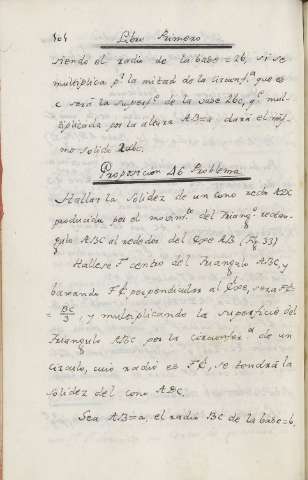 104 Libro Primero
siendo el radio de la base = 2b, si se
multiplica pr la mitad de la circunfa que es
c será la superfe de la base 2bc, qe mul-
tiplicada por la altura AB=a dará el mis-
mo solido 2abc.
Proposicion 46 Problema
Hallar la solidez de un cono recto ADC
producida por el movimto del Triangº rectan-
gulo ABC al rededor del Exe AB (Fig 33)
Hallese F centro del Triangulo ABC, y
baxando FE perpendicular al Exe, sera FE
= BC/3, y multiplicando la superficie del
Triangulo ABC por la circunfera de un
circulo, cuio radio es FE, se tendrá la
solidez del cono ADC.
Sea AB=a, el radio BC de la base=b,